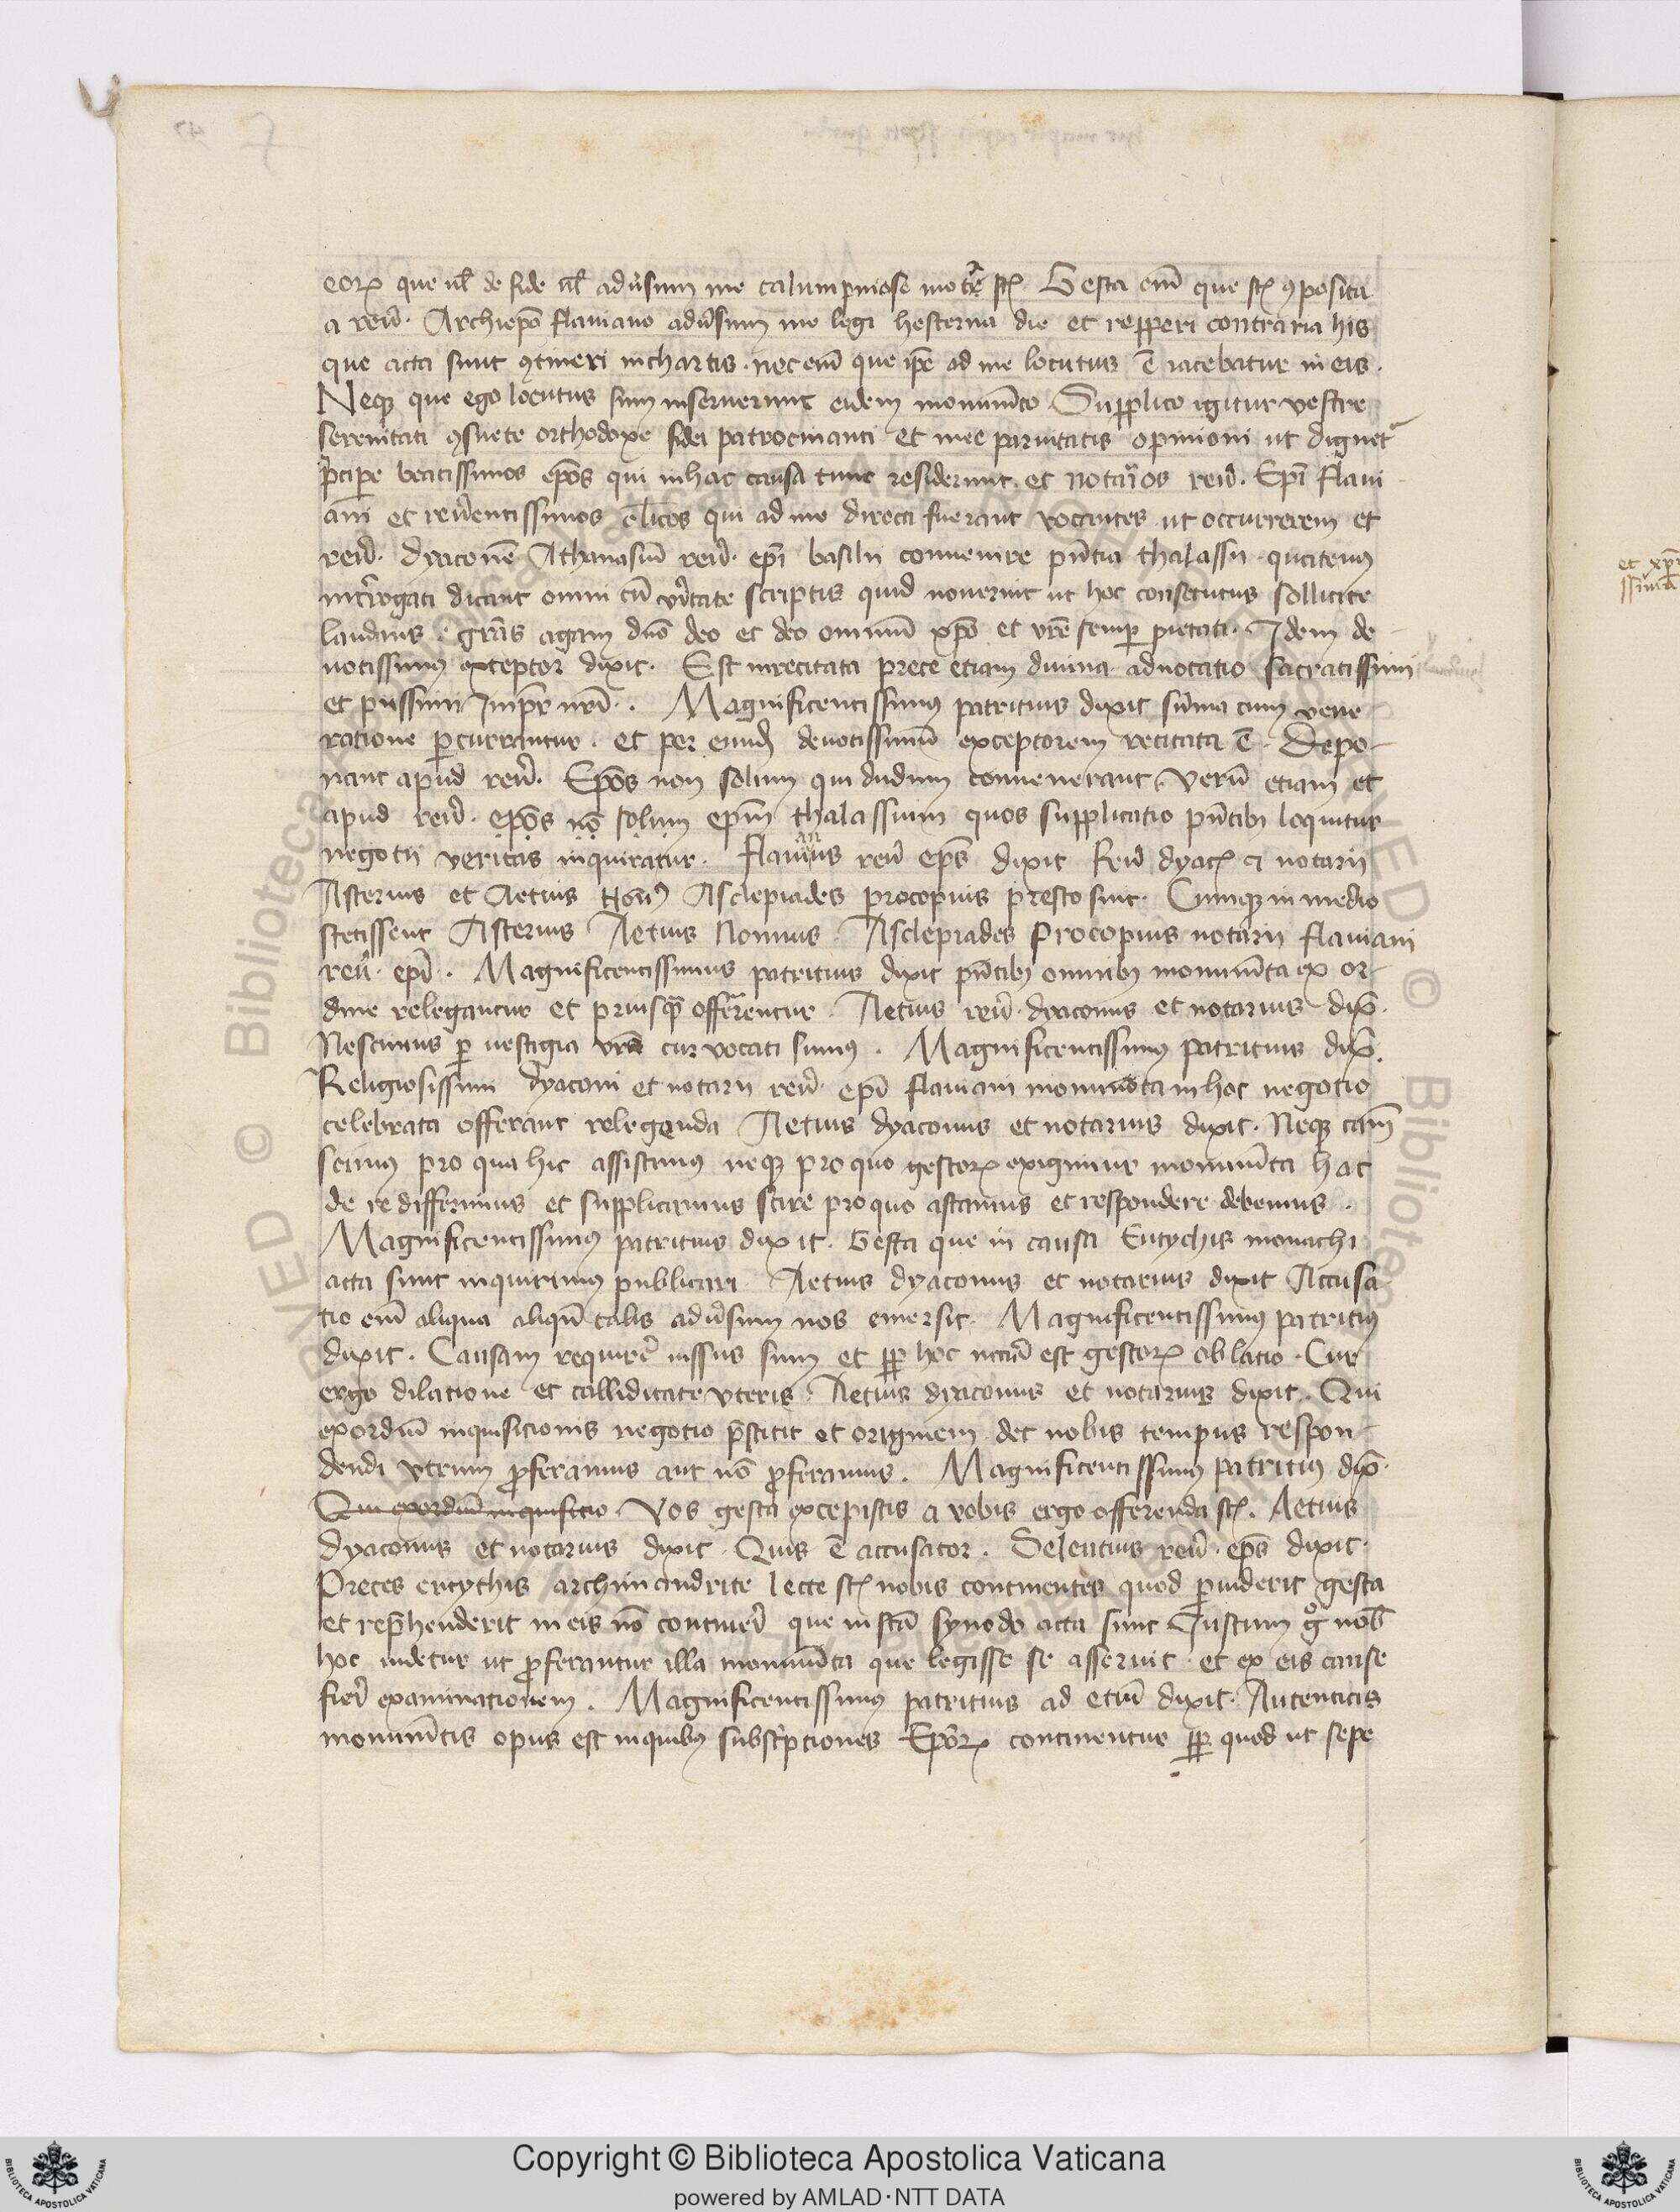 eorꝝ que ul̃ de fide ul̃ adũsum me calumpniose mote sꝉ Gesta eni̅ que sꝉ ꝯposita
a reũ. Archiep̃o flauiano adũsum me legi hesterna die et repperi contraria his
que acta sunt ꝯtineri in chartis. nec eni̅ que ip̃e ad me locutus ẽ iacebatur in eis.
Neqꝫ que ego locutus sum inseruerunt eidem monumẽto Supplico igitur vestre
serenitati ꝯsuete orthodoxe fidei patrocinanti et mee paruitatis opinioni ut dignet̃
p̃cipe beatissimos ep̃os qui in hac causa tunc residerunt. et notarios reũ. Ep̃i flaui
ani et reũentissimos cl̃icos qui ad me directi fuerant vocantes ut occurrerem et
reũ. dyaconẽ Athanasiũ reũ. ep̃i basilii conuenire p̃ntia thalassii quatenus
int̃rogati dicant omni cũ ũitate scriptis quid nouerint ut hoc consecutus sollicite
laudans gr̃as agam dño deo et deo omniũ xp̃o et vr̃e semp̲ pietati. Idem de
uotissimus exceptor dixit. Est in recitata prece etiam diuina adnotatio sacratissimi
et piissimi Imp̃r nr̃i. Magnificentissimus patritius dixit sũma cum vene
ratione p̲currantur. et per eundẽ deuotissimũ exceptorem recitata ẽ. Depo-
nant apud reũ. Ep̃os non solum qui dudum conuenerant Verũ etiam et
apud reũ. ep̃os nõ solum ep̃m thalassium quos supplicatio p̃ntibꝫ loquitur
negotii veritas inquiratur. flauianus reũ ep̃s dixit Reũ dyacꝭ et notarii
Asterius et Aetius Asclepiades procopius presto sint. Cumqꝫ in medio
stetissent Asterius Aetius Nonnus Asclepiades Procopius notarii flauiani
reũ. ep̃i. Magnificentissimus patritius dixit p̃ntibꝫ omnibꝫ monumẽta ex or-
dine relegantur et priusq̃ offerentur Aetius reũ. dyaconus et notarius dix̃.
Nescimus p̲ uestigia vr̃a cur vocati sumus. Magnificentissimus patritius dix̃.
Religiosissimi dyaconi et notarii reũ. ep̃i flauiani monumẽta in hoc negotio
celebrata offerant relegenda Aetius dyaconus et notarius dixit. Neqꝫ cãm
scimus pro qua hic assistimus neqꝫ pro quo gestorꝝ exigimur monumẽta hac
de re differimus et supplicamus scire pro quo astamus et respondere debemus.
Magnificentissimus patritius dixit. Gesta que in causa Eutychis monachi
acta sunt inquirimus publicari Aetius dyaconus et notarius dixit Accusa
tio eni̅ aliqua aliqñ talis adũsum nos emersit. Magnificentissimus patritius
dixit. Causam requirẽ iussus sum et pp̲ hoc nccm̃ est gestorꝝ oblatio. Cur
ergo dilatione et calliditate vteris. Aetius dyaconus et notarius dixit. Qui
exordiũ inquisicionis negotio p̃stitit et originem det nobis tempus respon-
dendi vtrum ꝓferamus aut nõ ꝓferamus. Magnificentissimus patritius dix̃.
Qui exordiũ inquisitio Vos gesta excepistis a vobis ergo offerenda sꝉ. Aetius
Dyaconus et notarius dixit. Quis ẽ accusator. Seleucius reũ. ep̃s dixit.
Preces eutythis archimandrite lecte sꝉ nobis continentes quod p̲uiderit gesta
et rep̃henderit in eis nõ contineri que in scã synodo acta sunt Iustum gͦ nob̃
hoc uidetur ut ꝓferantur illa monumẽta que legisse se asseruit et ex eis cause
fieri examinationem. Magnificentissimus patritius ad etiũ dixit. Autenticis
monumẽtis opus est in quibus subscriptiones Ep̃orꝝ continentur pp̲ quod ut sepe
et xp̃i
ssima
Copyright © Biblioteca Apostolica Vaticana
powered by AMLAD·NTT DATA